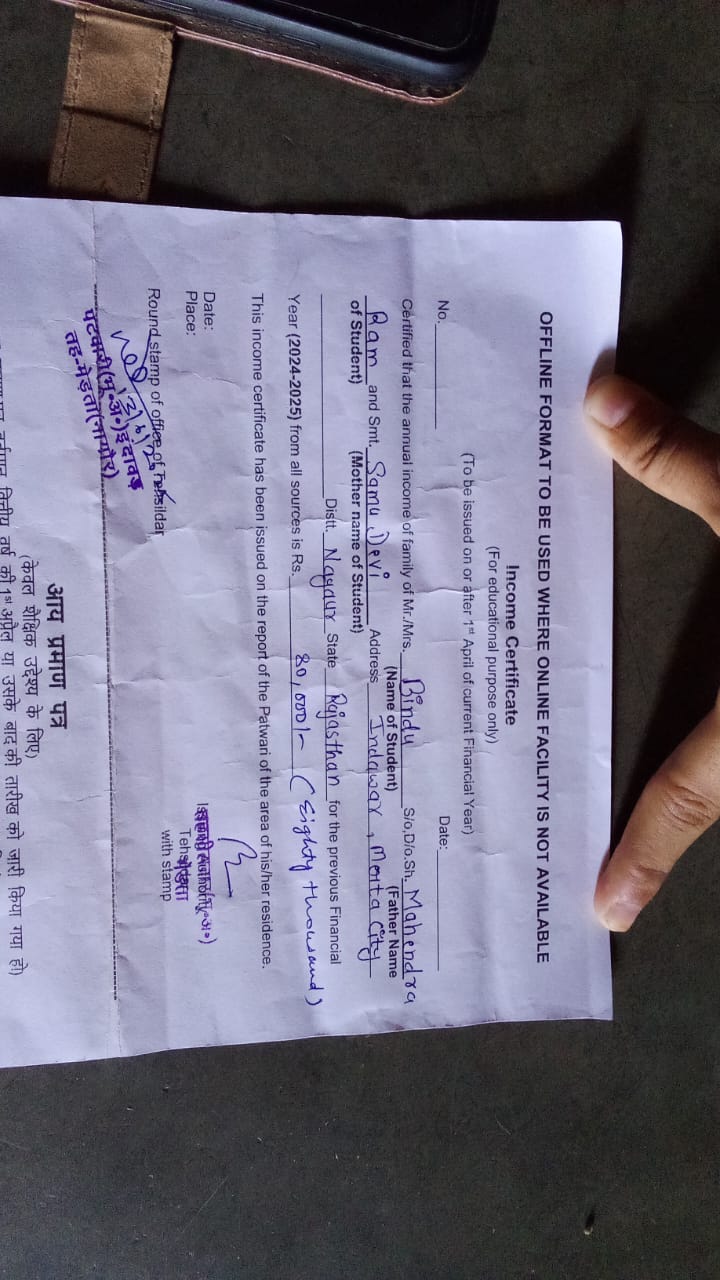 OFFLINE FORMAT TO BE USED WHERE ONLINE FACILITY IS NOT AVAILABLE
Income Certificate
(For educational purpose only)
(To be issued on or after 1st April of current Financial Year)
No. Date:
Certified that the annual income of family of Mr./Mrs. Bindu S/o,D/o.Sh. Mahendra
(Name of Student) (Father Name
Ram and Smt. Samu Devi Address Indawar, Merta City
of Student) (Mother name of Student)
Distt. Nagaur State Rajasthan for the previous Financial
Year (2024-2025) from all sources is Rs. 80,000/- (Eighty thousand)
This income certificate has been issued on the report of the Patwari of the area of his/her residence.
Date:
Place:
Round stamp of office of Tehsildar
with stamp
पटवारी(भू०अ०)इंदावड़
तह-मेड़ता(नागौर)
आय प्रमाण पत्र
(केवल शैक्षिक उद्देश्य के लिए)
वर्तमान वित्तीय वर्ष की 1st अप्रैल या उसके बाद की तारीख को जारी किया गया हो)